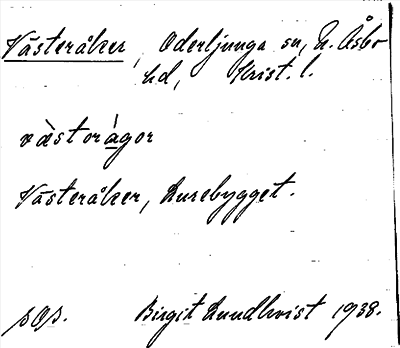 Västeråker, Oderljunga sn, N. Åsbo
hd, Krist. l.
væ̀storágor
Västeråker, Lurebygget.
sOp. Birgit Lundkvist 1938.